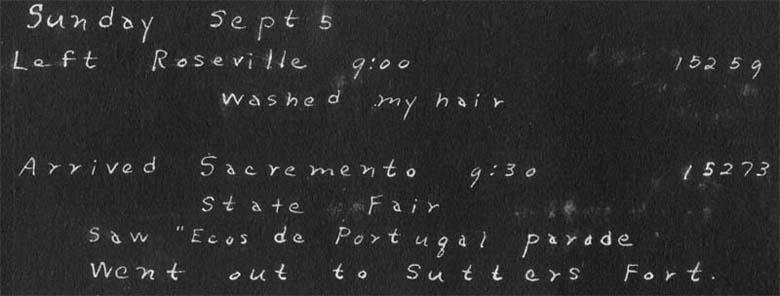 Sunday Sept 5
Left Roseville 9:00 15259
Washed my hair
Arrived Sacremento 9:30 15273
State Fair
Saw "Ecos de Portugal parade
Went out to Sutters Fort.